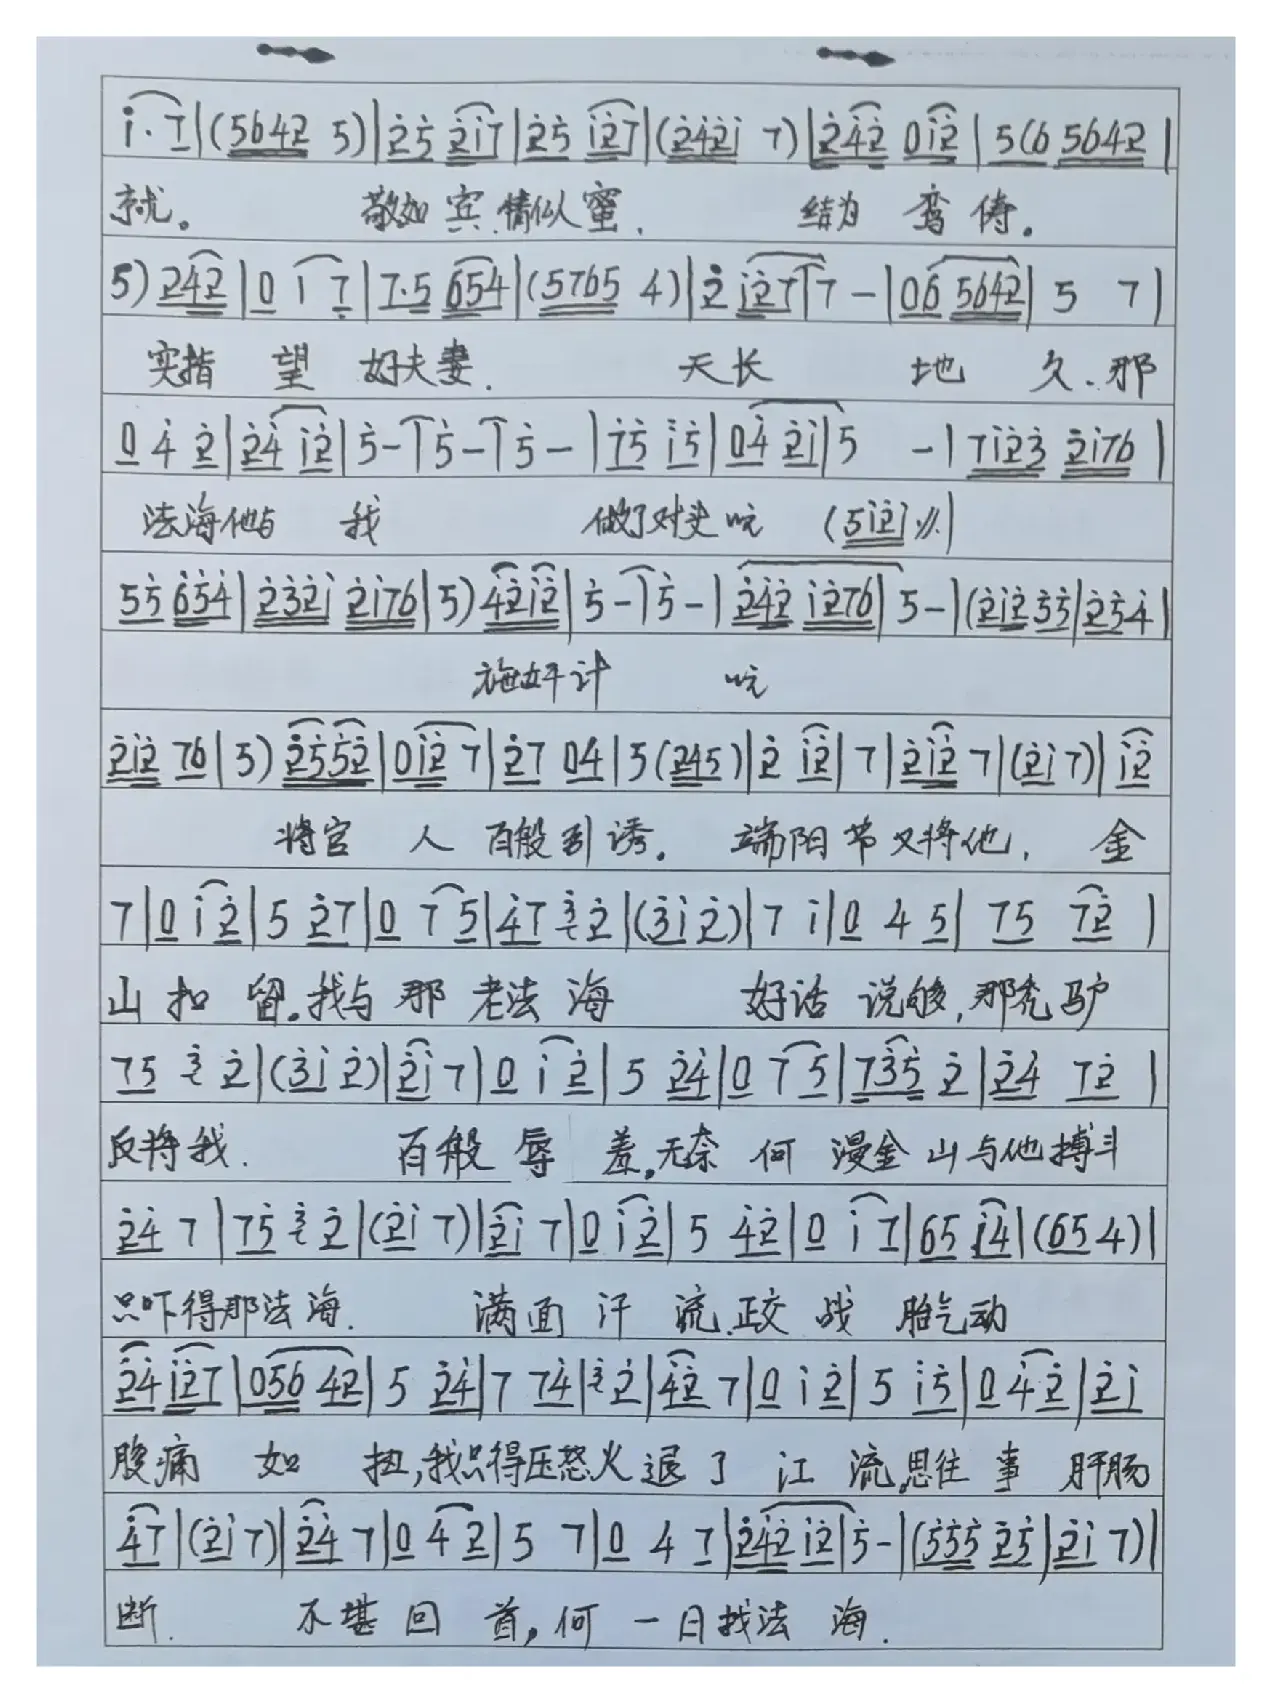 i·7|(5642 5)|25 2i7|25 i27|(242i 7)|242 0i2|5(6 5642|
就。 敬如宾,情似人蜜, 结为 鸾俦。
5) 242|0 i 7|7·5 654|(5765 4)|2 i27|7 -|06 5642|5 7|
实指 望 好夫妻. 天长 地 久、那
0 4 2|24 i2|5-|5-|5-|75 i5|04 2i|5 -|7i23 2i76|
法海他与 我 做了对头吭 (5i2i //.)
55 654|232i 2i76|5) 42i2|5-|5-|242 i276|5-|(2i2 35|254|
施奸计 吭
2i2 76|5) 2552|0i2 7|27 04|5(245)|2 i2|7|2i2 7|(2i 7)|i2
将官 人 百般引诱。端阳节又将他, 金
7|0 i 2|5 27|0 7 5|47 3 2|(3i 2)|7 i|0 4 5|75 72|
山 扣 留。我与那 老法海 好话 说够,那秃驴
75 3 2|(3i 2)|2i 7|0 i 2|5 24|0 7 5|735 2|24 72|
反将我. 百般 辱 羞,无奈 何 漫金山与他搏斗
24 7|75 3 2|(2i 7)|2i 7|0 i2|5 42|0 i 7|65 i4|(65 4)|
只吓得那法海. 满面 汗 流,正交 战 胎气动
24 i27|056 42|5 24|7 74|3 2|42 7|0 i 2|5 i5|0 4 2|2i
腹痛 如 扭,我只得压怒火退了 江 流,思往 事 肝肠
47|(2i 7)|24 7|0 4 2|5 7|0 4 7|242 i2|5-|(555 25|2i 7)|
断. 不堪 回 首,何 一日找法 海.